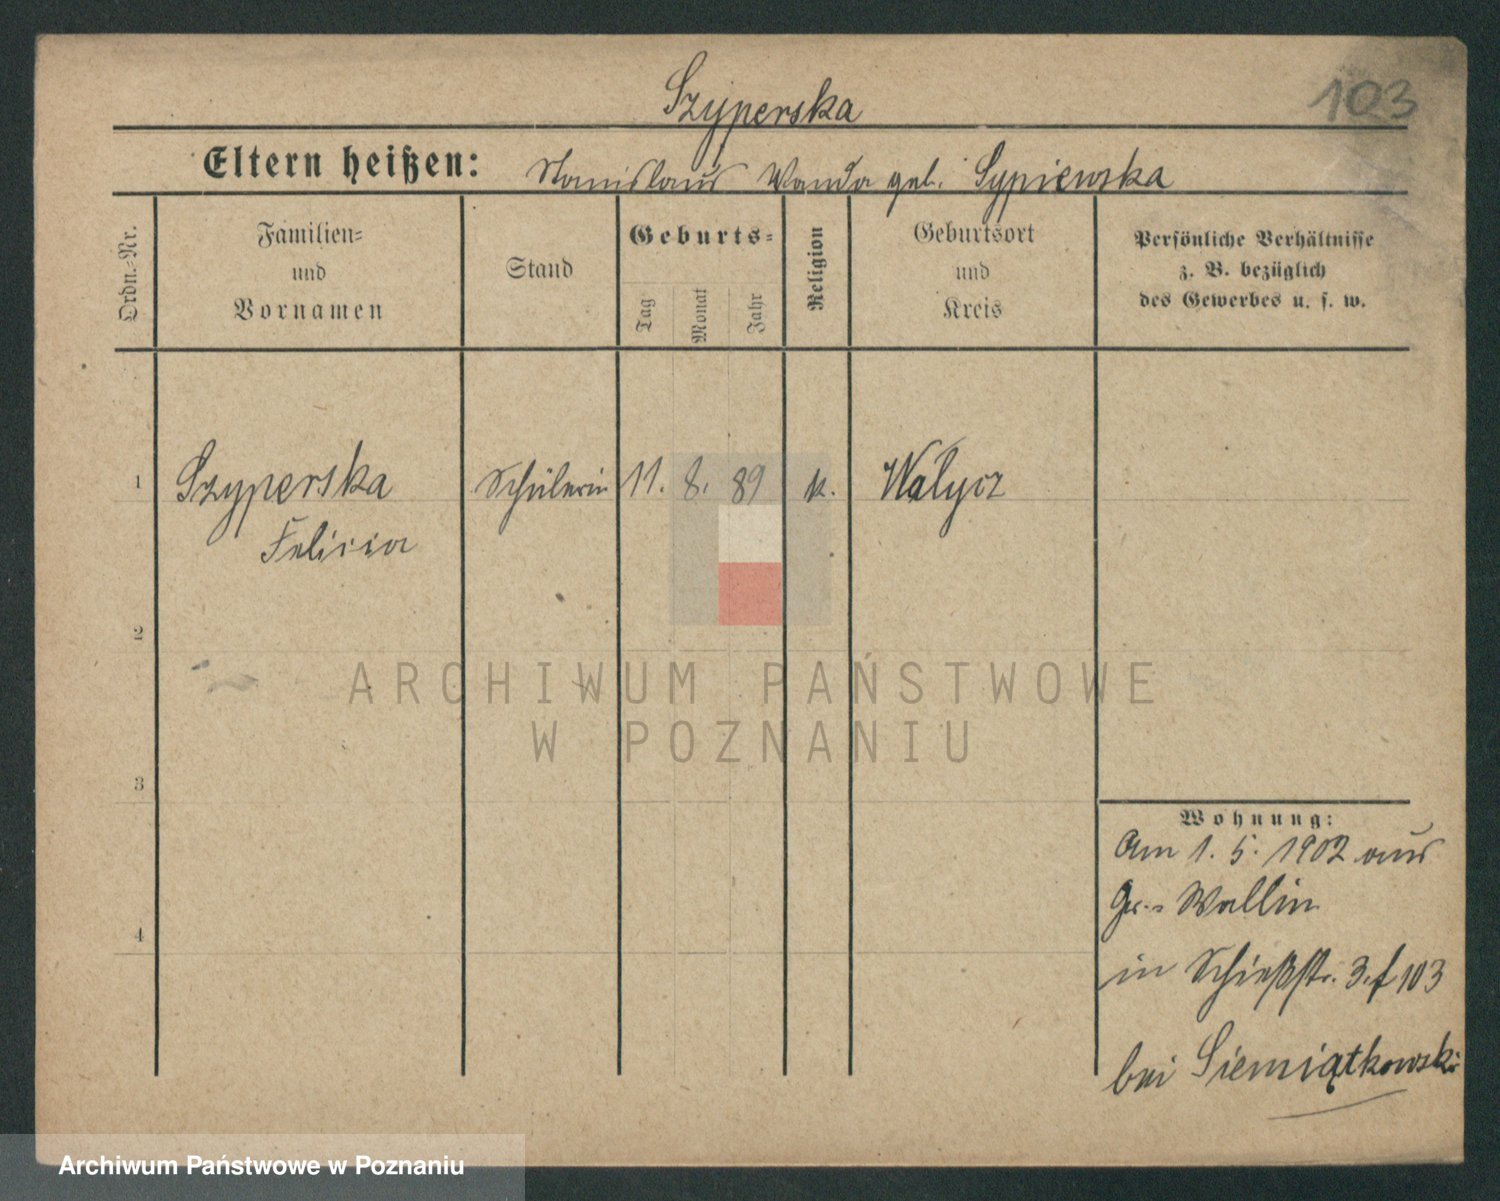 103
Szyperska
Eltern heißen: Stanislaus Wanda geb. Sypiewska
Ordn.-Nr.
Familien-
und
Vornamen
Stand
Geburts-
Tag
Monat
Jahr
Religion
Geburtsort
und
Kreis
Persönliche Verhältnisse
z. B. bezüglich
des Gewerbes u. s. w.
1 Szyperska Schülerin 11. 8. 89 k. Wałycz
Felicia
2
3
4
Wohnung:
Am 1. 5. 1902 aus
Gr.- Wallin
in Schießstr. 3. f 103
bei Siemiątkowski
ARCHIWUM PAŃSTWOWE
W POZNANIU
Archiwum Państwowe w Poznaniu